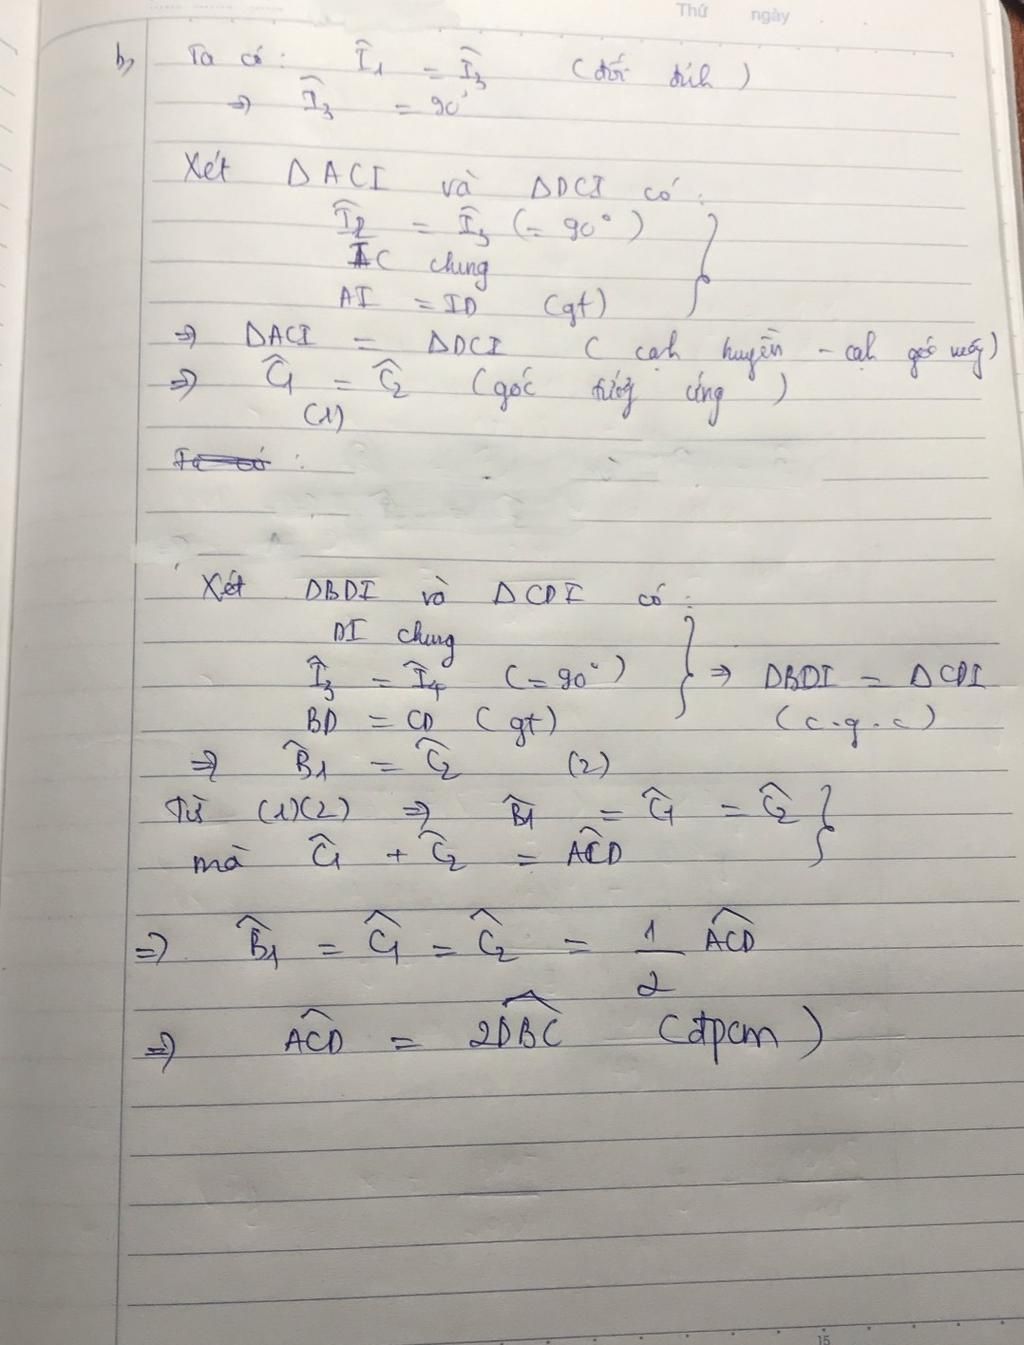 Thứ ngày
b, Ta có: Î₁ = Î₃ (đối đỉnh)
=> Î₃ = 90°
Xét ΔACI và ΔDCI có:
Î₂ = Î₃ (= 90°)
IC chung
AI = ID (gt)
=> ΔACI = ΔDCI (cạnh huyền - cạh góc vuông)
=> Ĉ₁ = Ĉ₂ (góc tương ứng)
(1)
Ta có :
Xét ΔBDI và ΔCDI có:
DI chung
Î₃ = Î₄ (= 90°) => ΔBDI = ΔCDI
BD = CD (gt) (c.g.c)
=> B̂₁ = Ĉ₂ (2)
Từ (1)(2) => B̂₁ = Ĉ₁ = Ĉ₂
mà Ĉ₁ + Ĉ₂ = AĈD
=> B̂₁ = Ĉ₁ = Ĉ₂ = 1/2 AĈD
=> AĈD = 2DB̂C (đpcm)
15